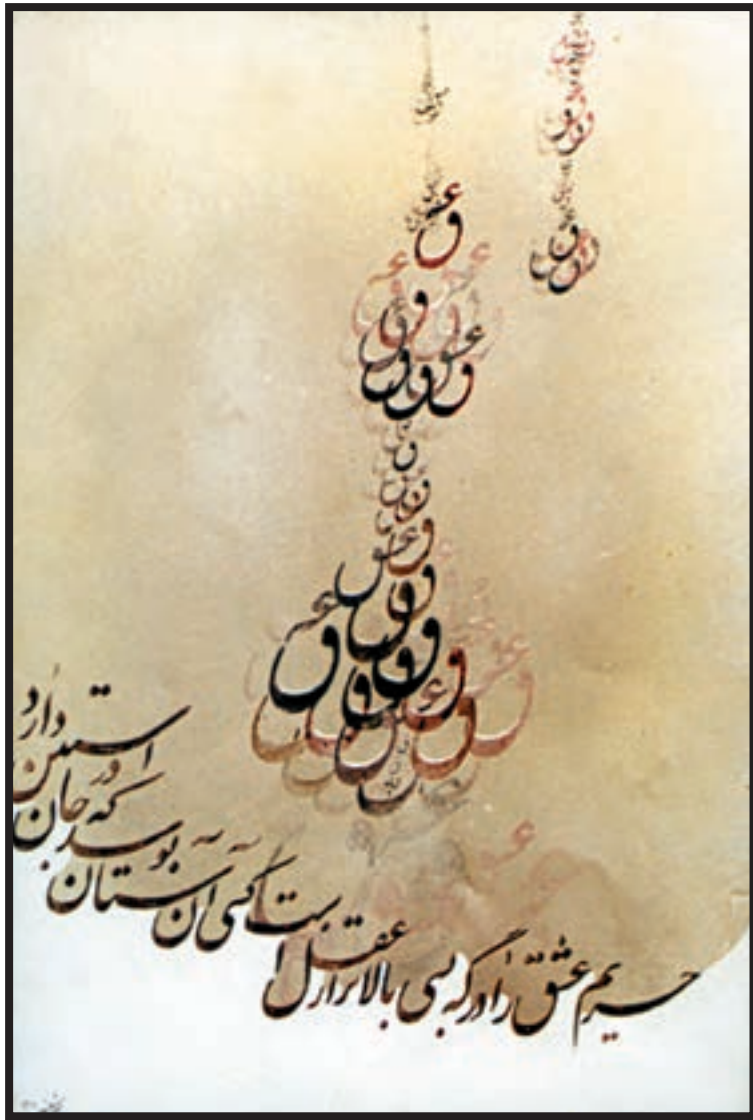 عشق
عشق
عشق
عشق
عشق
عشق
حریم عشق را درگه بسی بالاتر از عقل است کسی آن آستان بوسد که جان در آستین دارد